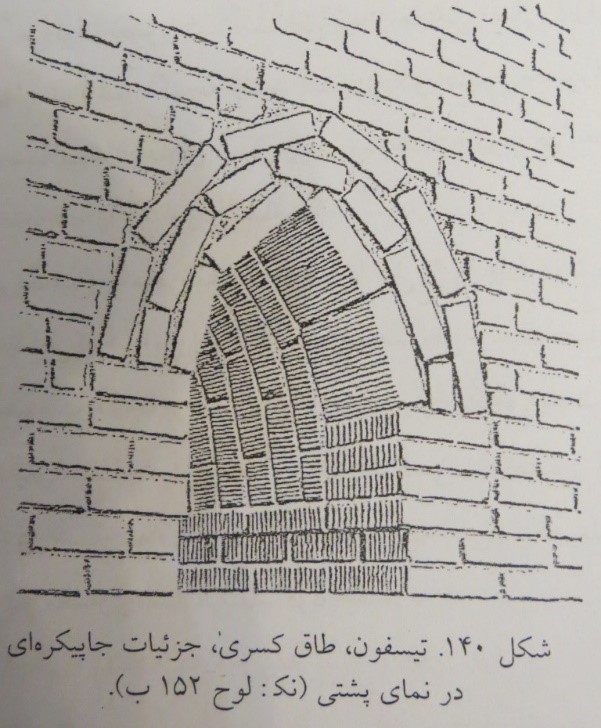 شکل ۱۴۰. تیسفون، طاق کسریٰ، جزئیات جاپیکره‌ای
در نمای پشتی (نک: لوح ۱۵۲ ب).